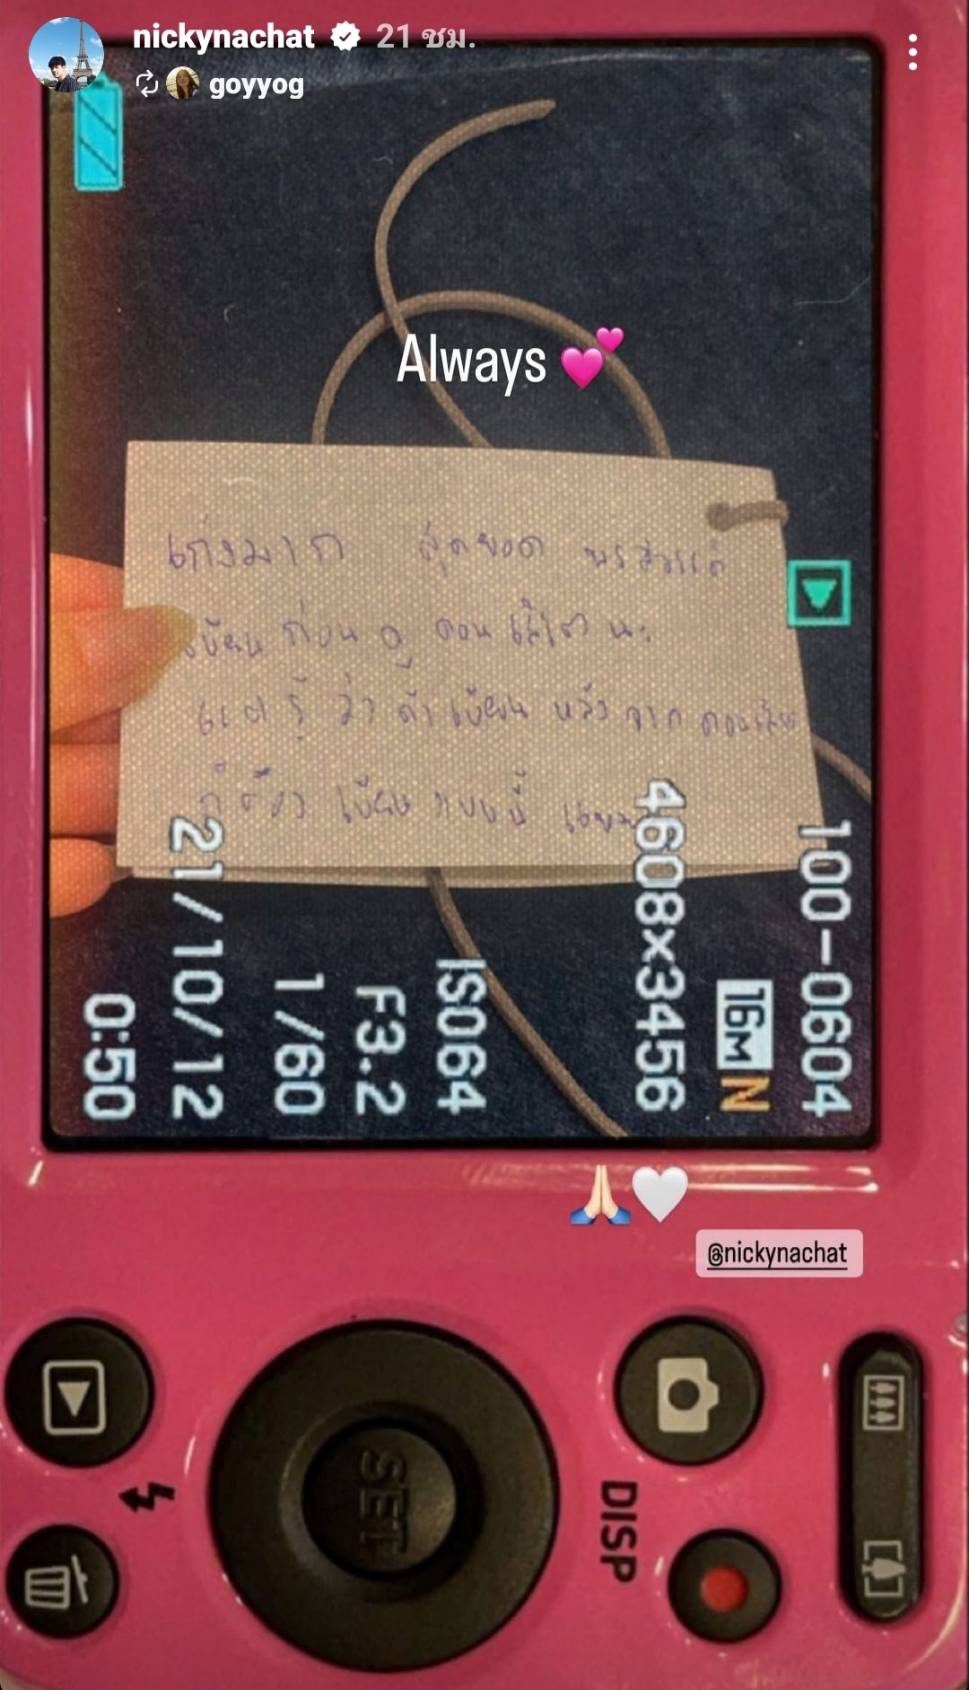 nickynachat 21 ชม.
goyyog
Always 💕
เก่งมาก สุดยอด
เขียน ก่อน ดู ตอน นะ
แต่ รู้ ว่า ถ้า เขียน หลัง จาก
ก็ต้อง เขียน แบบนี้
100-0604
16M N
4608×3456
ISO64
F3.2
1/60
21/10/12
0:50
🙏🏻🤍
@nickynachat
SET
DISP